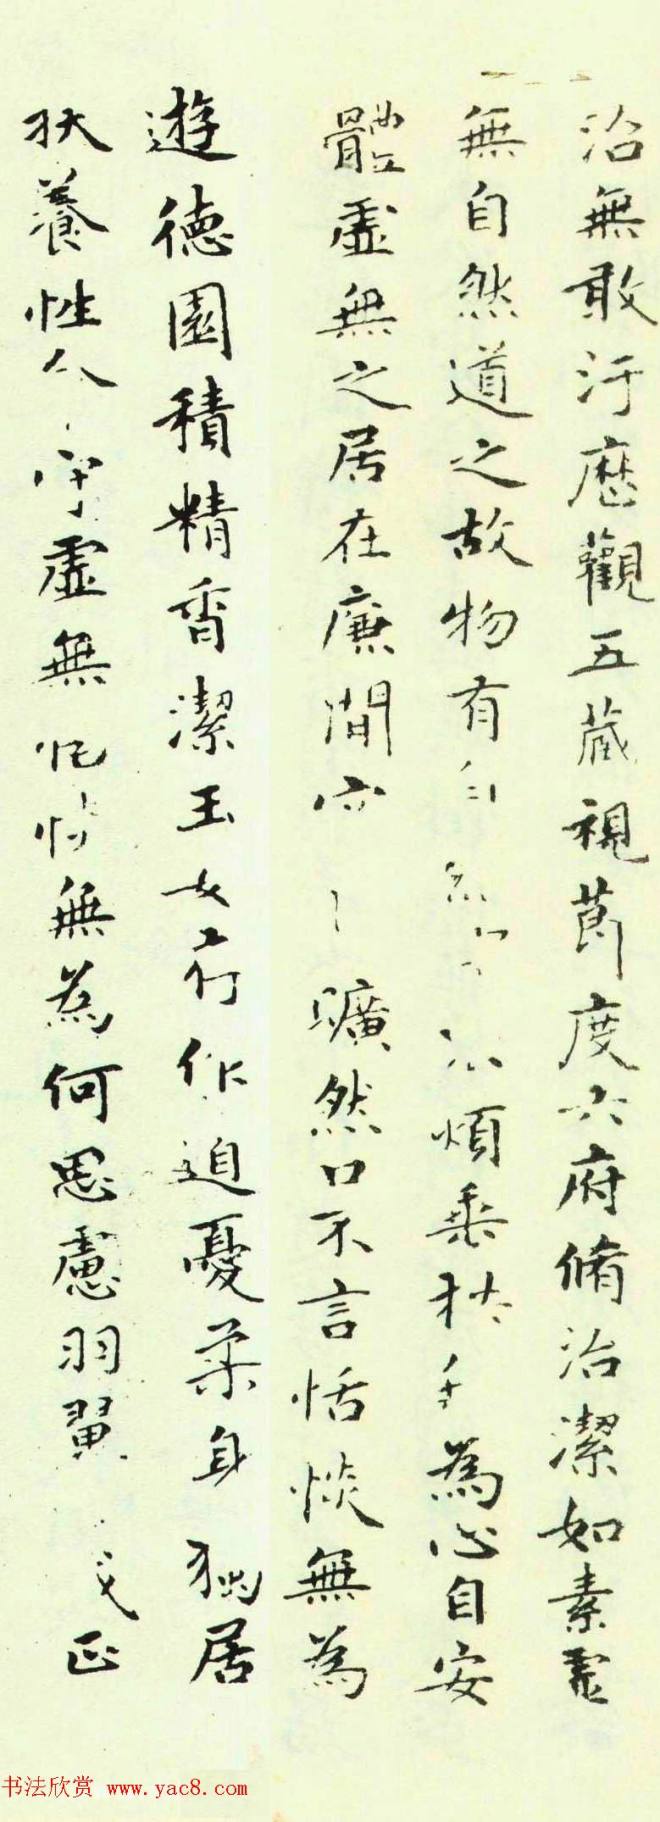 治無敢汙歷觀五藏視莭度六府脩治潔如素虛
無自然道之故物有自煩垂拱為心自安
體虛無之居在廉間曠然口不言恬惔無為
遊德園積精香潔玉女存作迫憂柔身獨居
扶養性命守虛無恬惔無為何思慮羽翼成正
书法欣赏 www.yac8.com